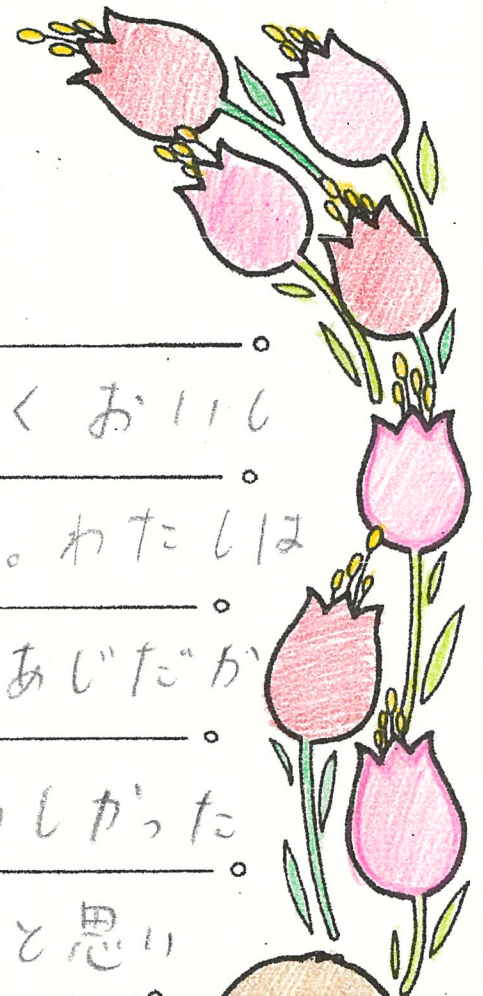 くおいし
。わたしは
あじだか
しかった
と思い